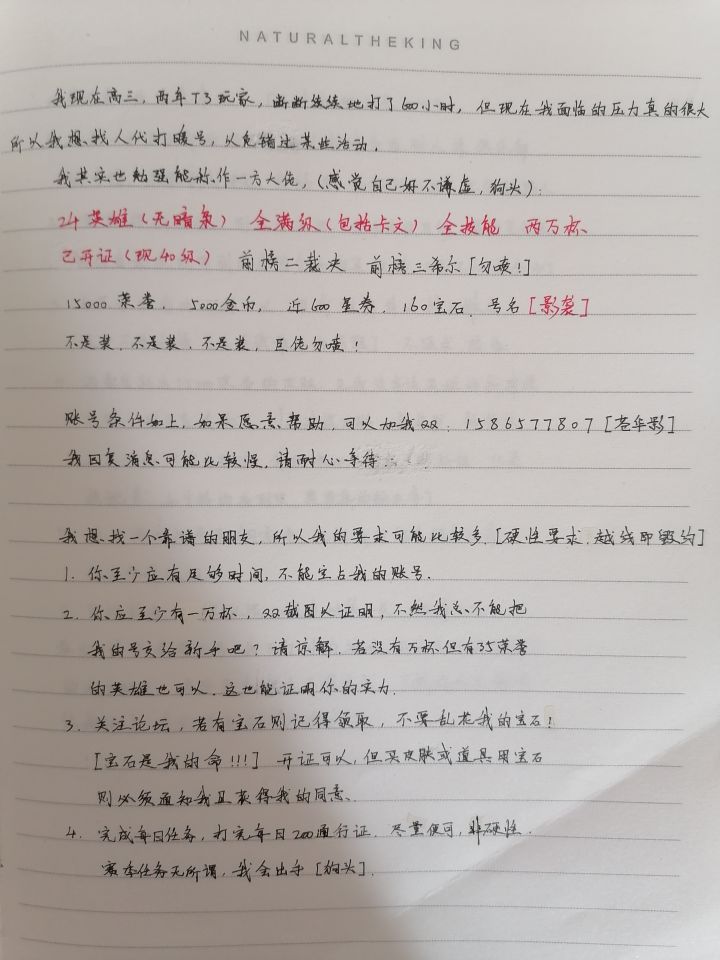 NATURALTHEKING
我现在高三，两年T3玩家，断断续续地打了600小时，但现在我面临的压力真的很大
所以我想找人代打暖号，以免错过某些活动．
我其实也勉强能称作一方大佬，(感觉自己好不谦虚，狗头)：
24英雄（无暗枭） 全满级（包括卡文） 全技能 两万杯、
已开证（现40级） 前榜二裁决 前榜三希尔［勿喷！］
15000荣誉．5000金币，近600星券．160宝石．号名［影袭］
不是装．不是装．不是装，巨佬勿喷！
账号条件如上，如果愿意帮助，可以加我QQ：1586577807［苍华影］
我回复消息可能比较慢，请耐心等待......
我想找一个靠谱的朋友，所以我的要求可能比较多．［硬性要求，越线即毁约］
1．你至少应有足够时间，不能空占我的账号．
2．你应至少有一万杯，QQ截图以证明，不然我总不能把
我的号交给新手吧？请谅解．若没有万杯但有35荣誉
的英雄也可以．这也能证明你的实力．
3．关注论坛，若有宝石则记得领取，不要乱花我的宝石！
［宝石是我的命!!!］ 开证可以，但买皮肤或道具用宝石
则必须通知我且获得我的同意、
4．完成每日任务，打完每日200通行证．尽量便可，非硬性．
赛季任务无所谓，我会出手［狗头］．